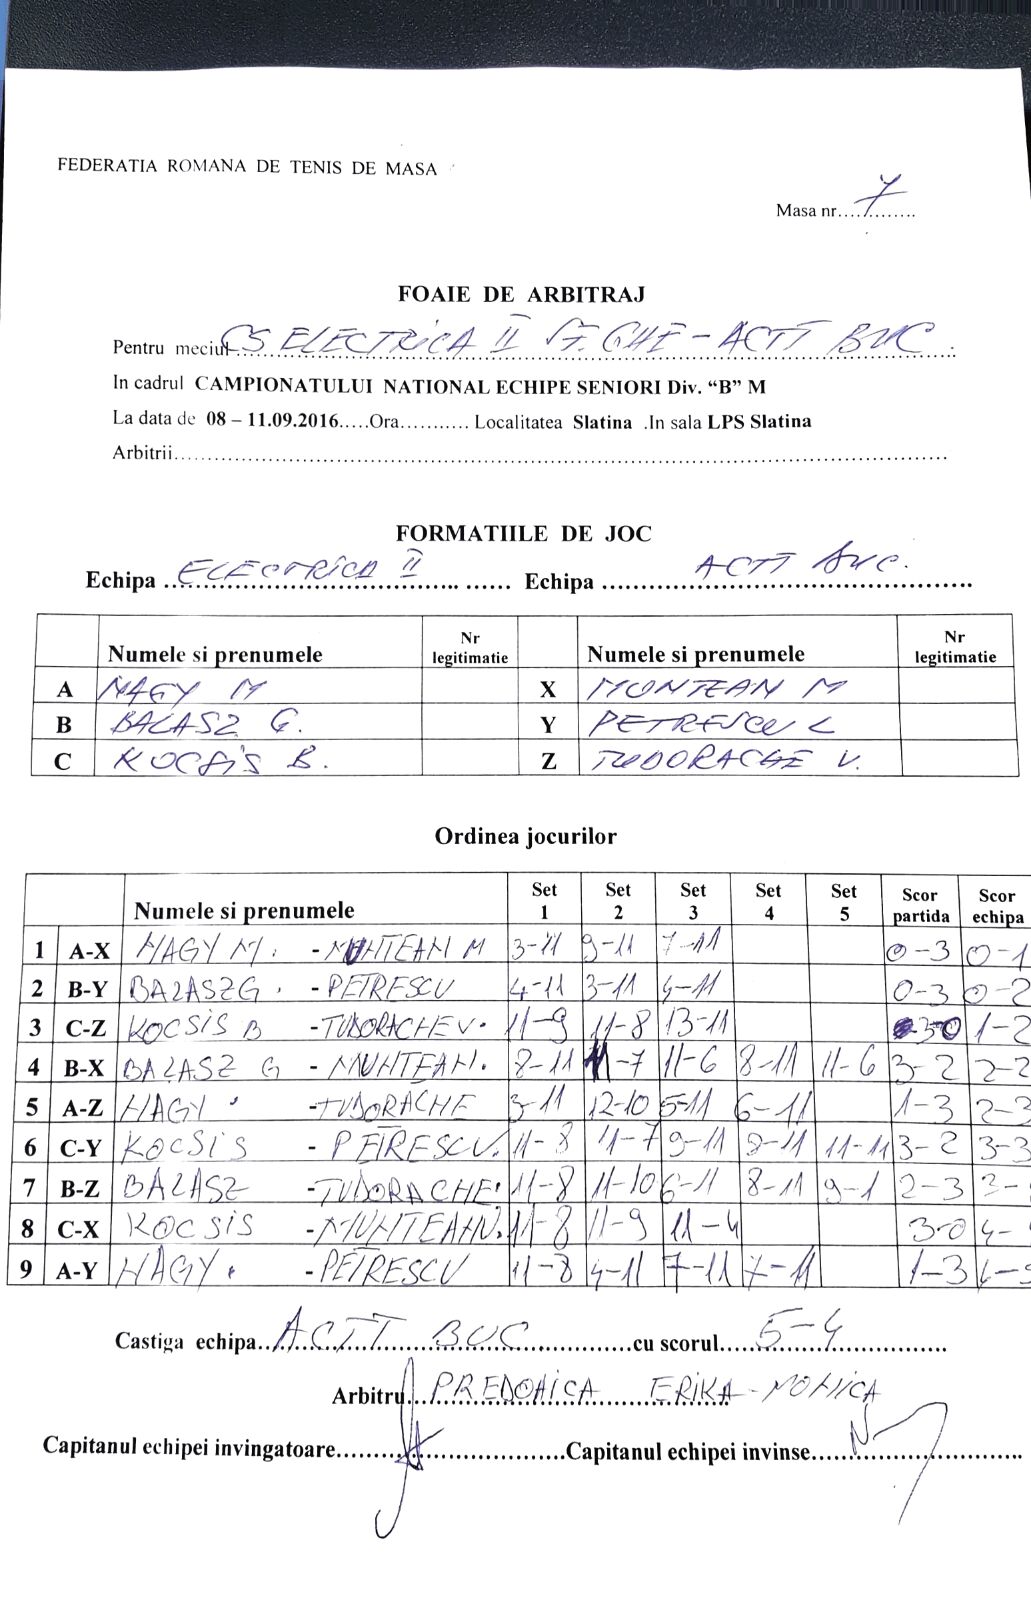 FEDERATIA ROMANA DE TENIS DE MASA
Masa nr.....7........
FOAIE DE ARBITRAJ
Pentru meciul CS ELECTRICA II SF. GHE - ACTT BUC
In cadrul CAMPIONATULUI NATIONAL ECHIPE SENIORI Div. “B” M
La data de 08 – 11.09.2016.....Ora........... Localitatea Slatina .In sala LPS Slatina
Arbitrii....................
FORMATIILE DE JOC
Echipa ELECTRICA II Echipa ACTT BUC.
Numele si prenumele Nr legitimatie Numele si prenumele Nr legitimatie
A NAGY M X MONTEAN M
B BALASZ G. Y PETRESCU L
C KOCSIS B. Z TUDORACHE V.
Ordinea jocurilor
Numele si prenumele Set 1 Set 2 Set 3 Set 4 Set 5 Scor partida Scor echipa
1 A-X NAGY M. - MUNTEAN M 3-11 9-11 7-11 0-3 0-1
2 B-Y BALASZ G. - PETRESCU 4-11 3-11 4-11 0-3 0-2
3 C-Z KOCSIS B - TUDORACHE V. 11-9 11-8 13-11 3-0 1-2
4 B-X BALASZ G - MUNTEAN. 8-11 11-7 11-6 8-11 11-6 3-2 2-2
5 A-Z NAGY - TUDORACHE 3-11 12-10 5-11 6-11 1-3 2-3
6 C-Y KOCSIS - PETRESCU. 11-8 11-7 9-11 9-11 11-11 3-2 3-3
7 B-Z BALASZ - TUDORACHE. 11-8 11-10 6-11 8-11 9-1 2-3 3-
8 C-X KOCSIS - MUNTEAN. 11-8 11-9 11-4 3-0 4-
9 A-Y NAGY. - PETRESCU 11-8 4-11 7-11 7-11 1-3 4-5
Castiga echipa ACTT BUC cu scorul 5-4
Arbitru PREDOAICA ERIKA-MONICA
Capitanul echipei invingatoare..........Capitanul echipei invinse..........